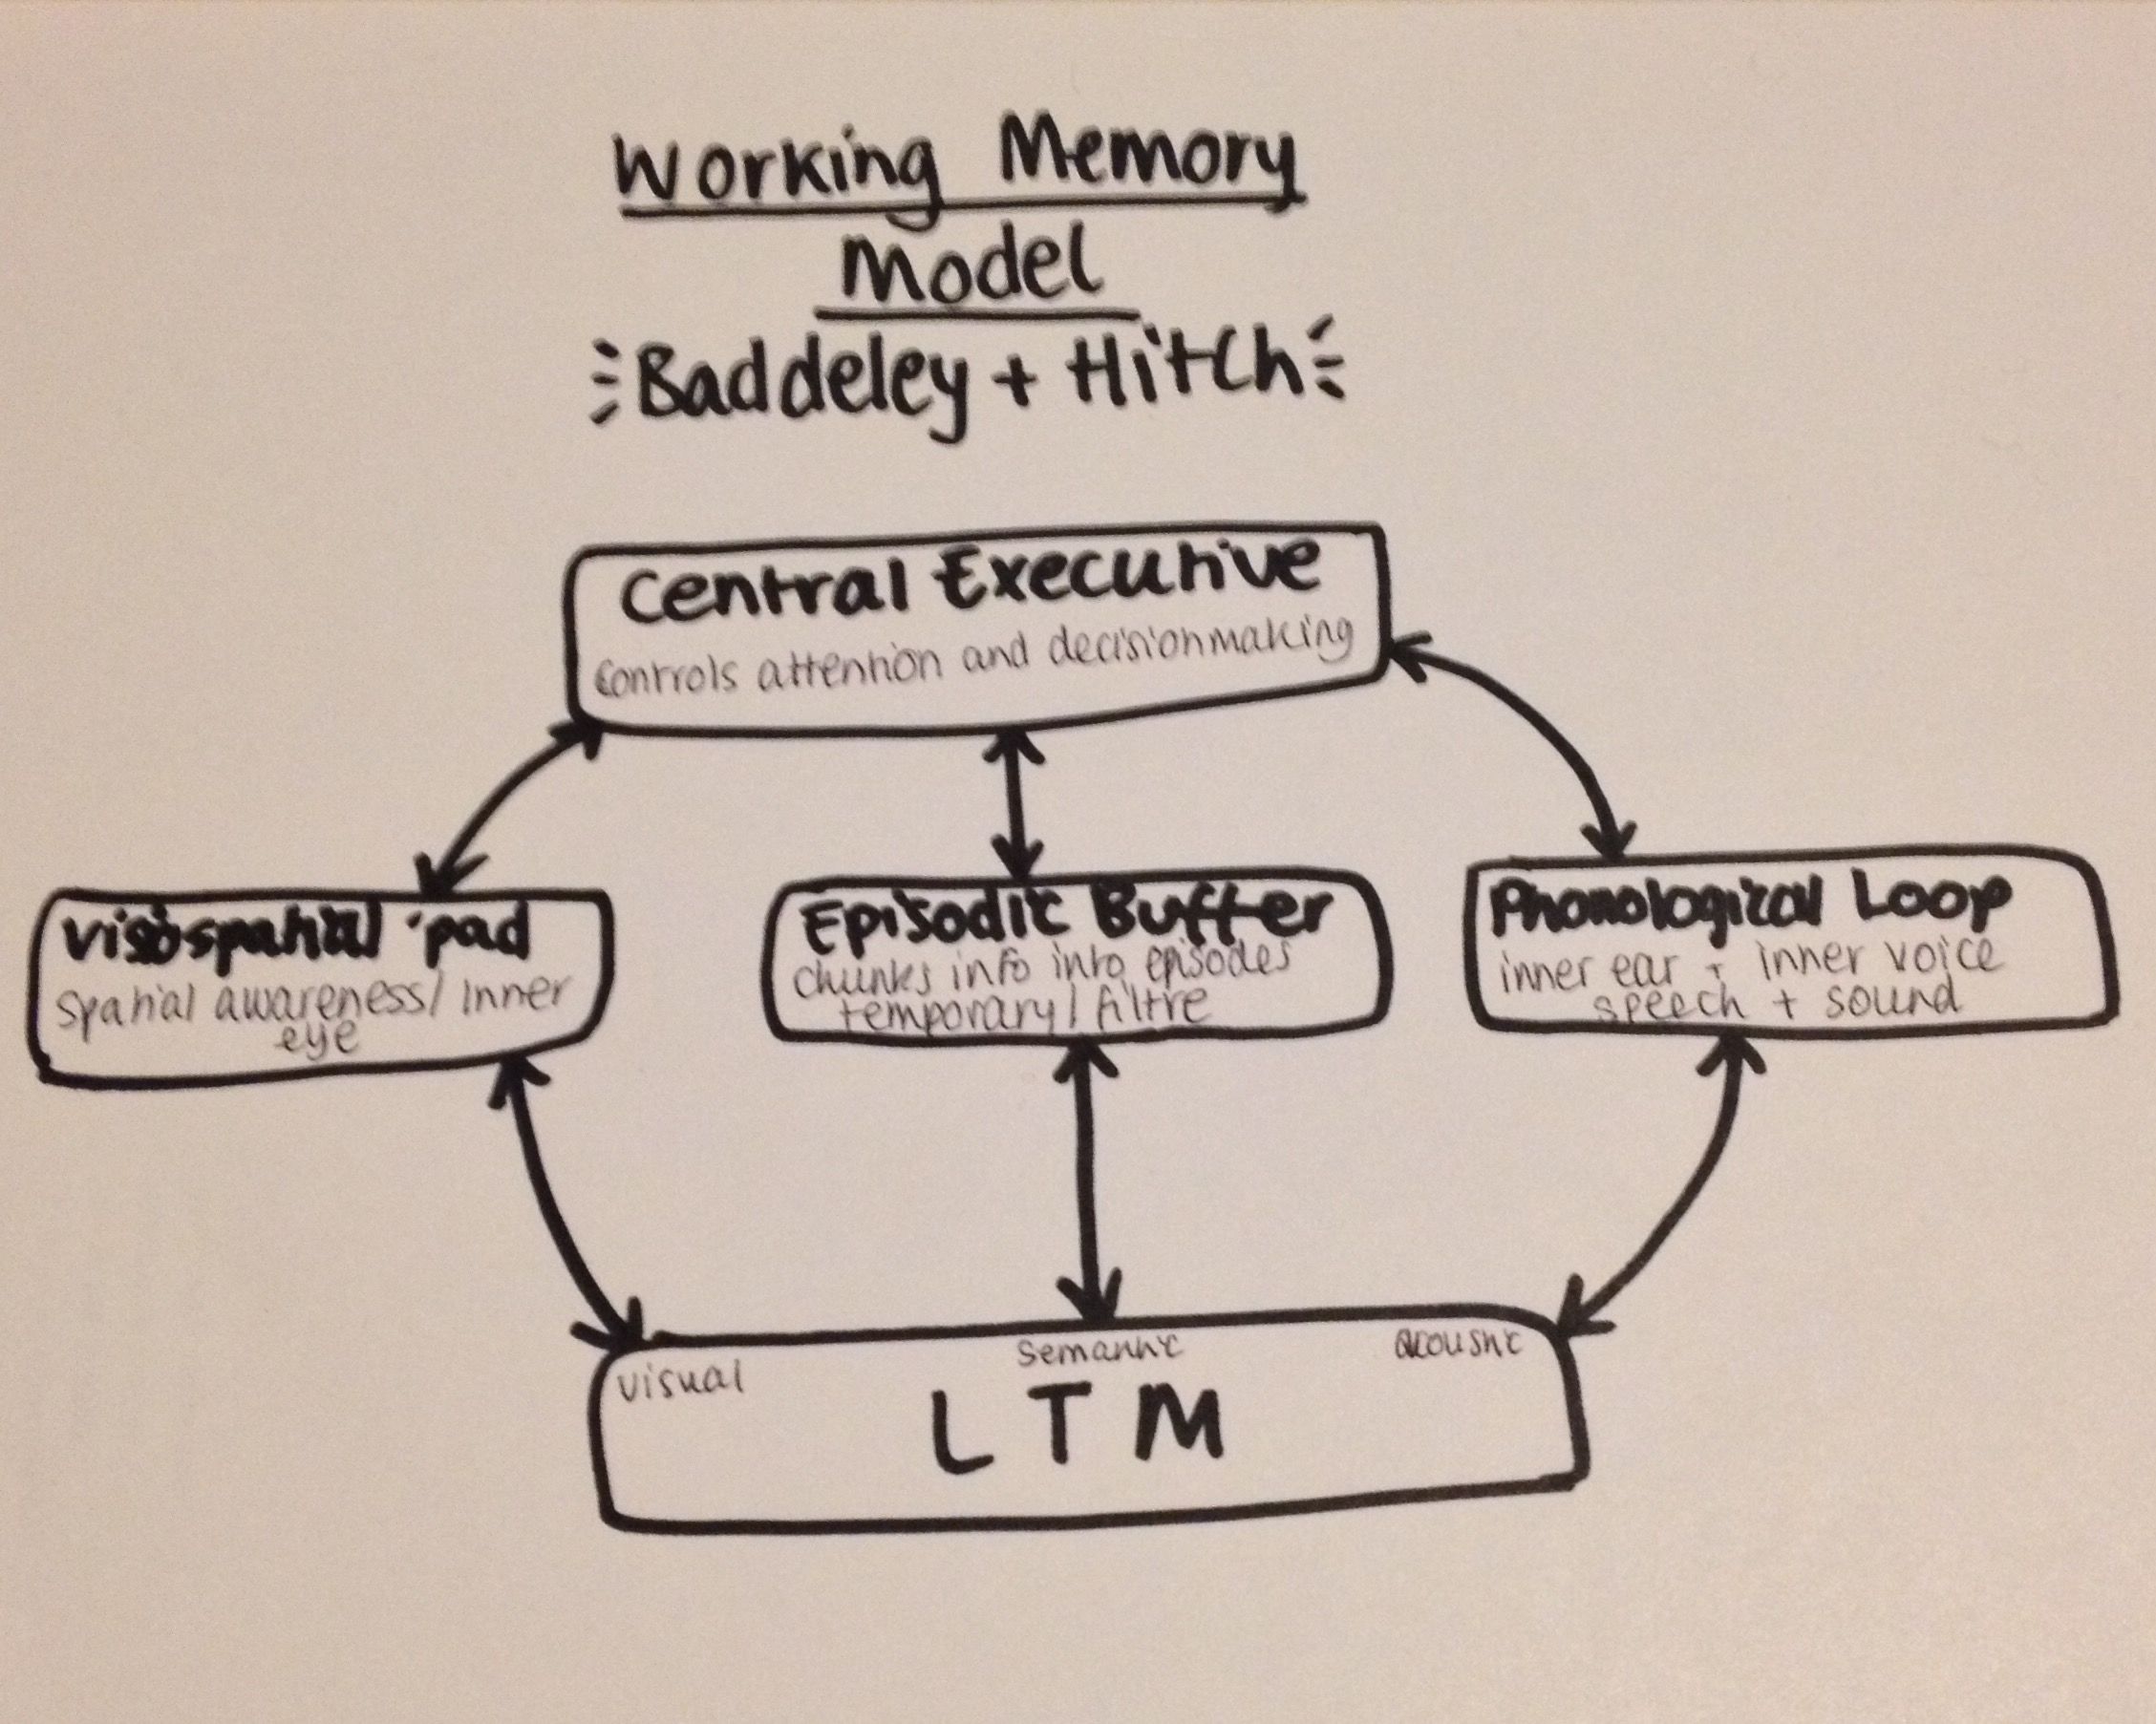 Working Memory
Model
Baddeley + Hitch
Central Executive
Controls attention and decisionmaking
visospatial 'pad
spatial awareness/ inner
eye
Episodic Buffer
chunks info into episodes
temporary / filtre
Phonological Loop
inner ear + inner voice
speech + sound
visual
semantic
acoustic
LTM